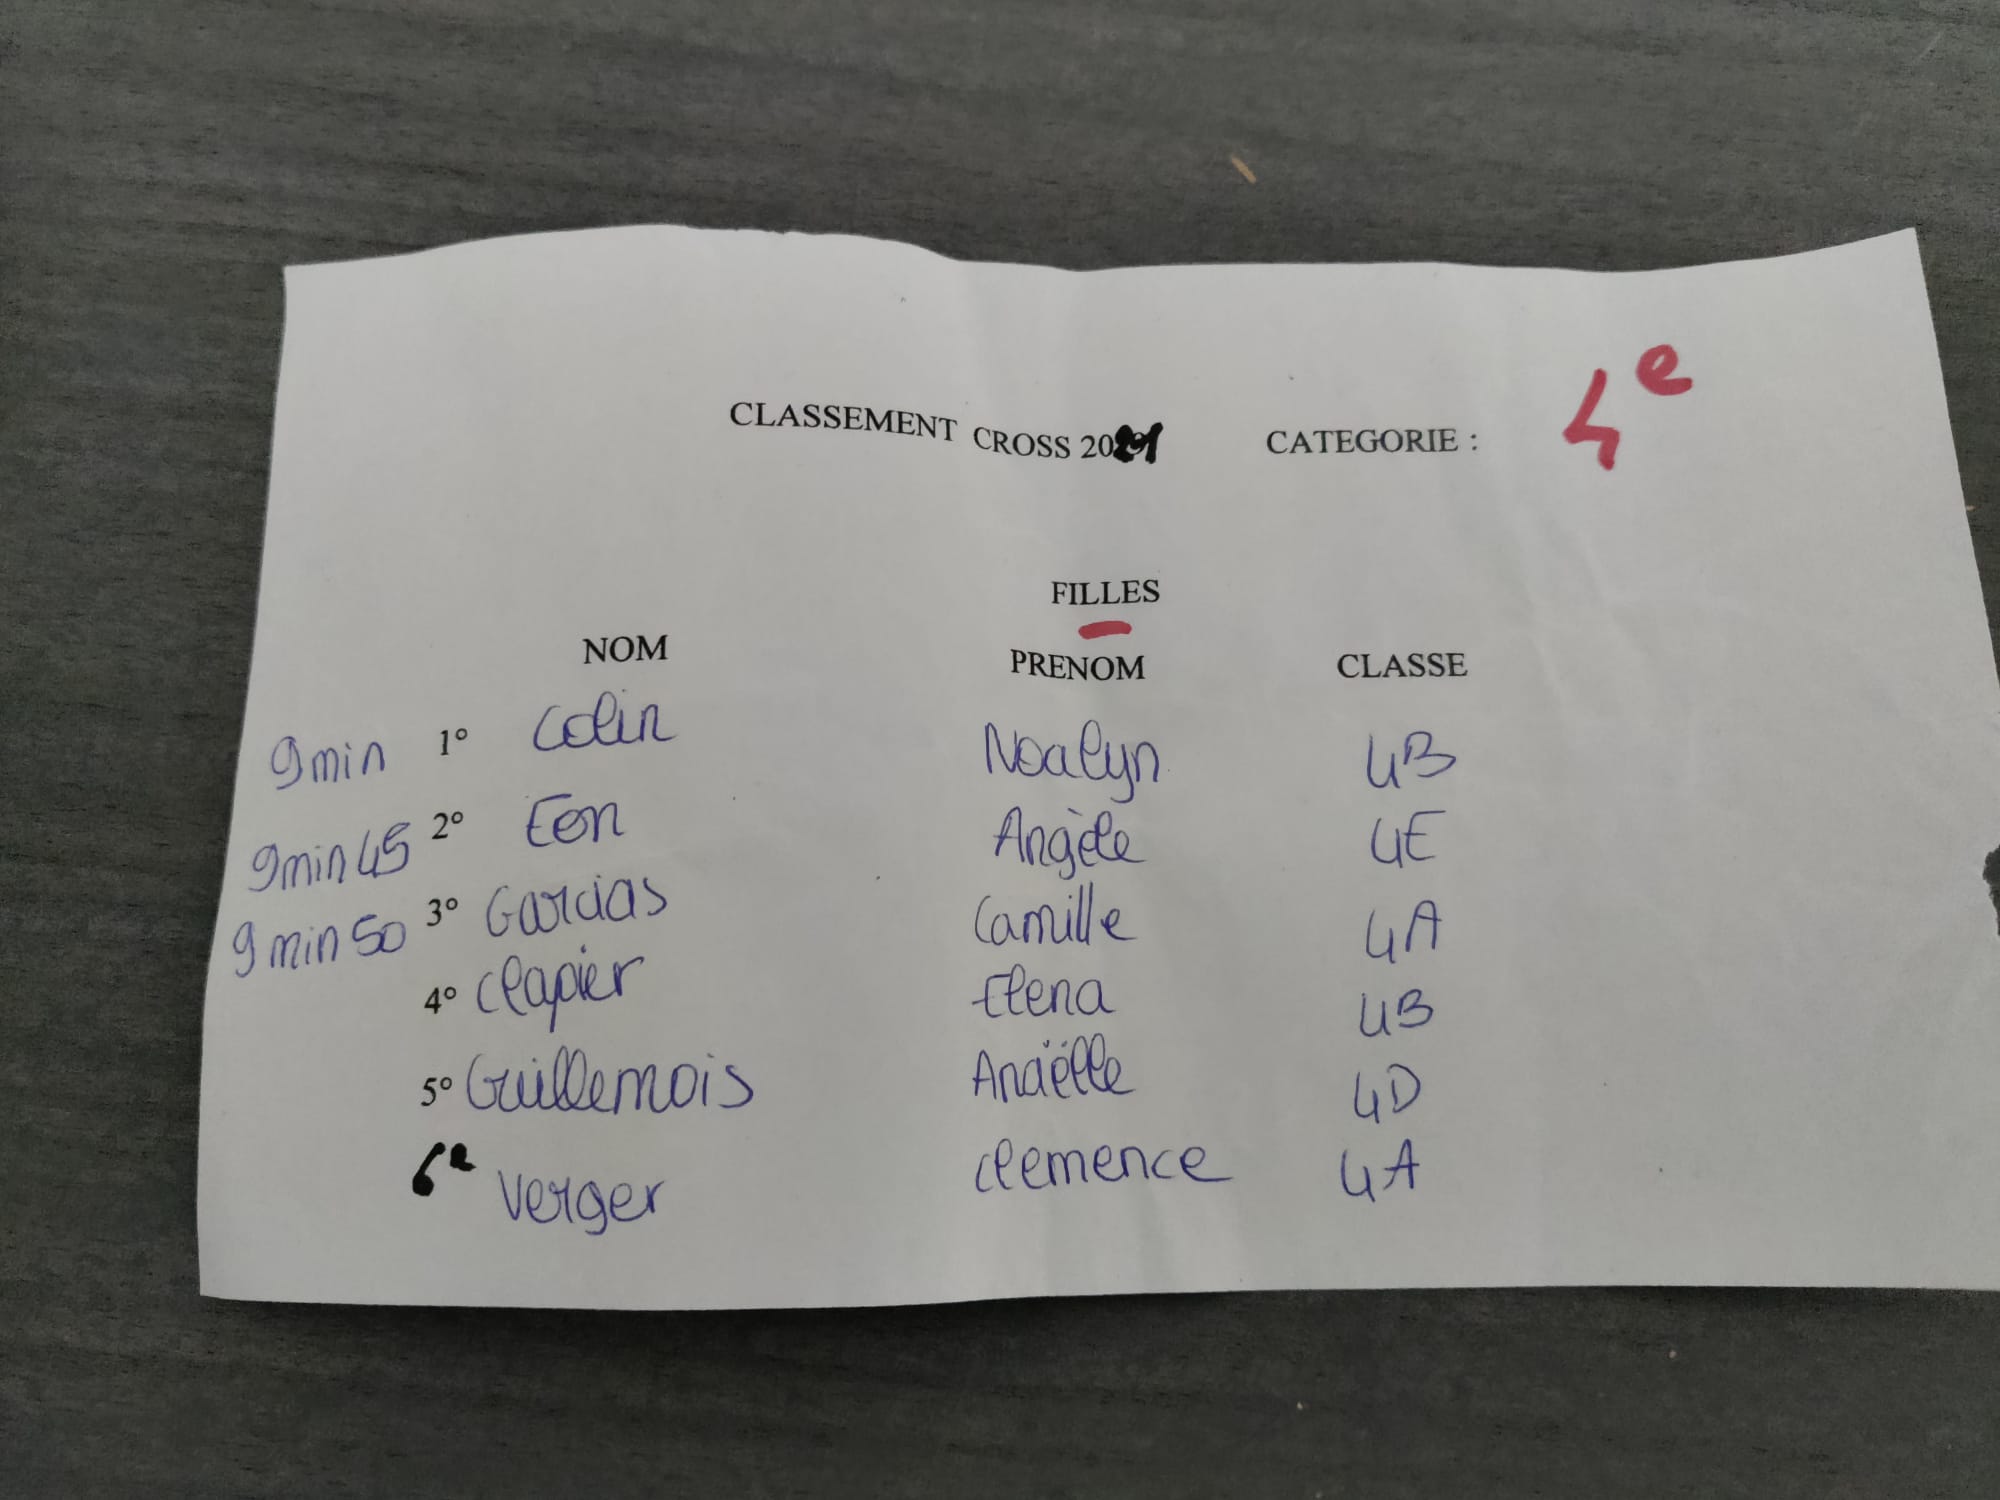 CLASSEMENT CROSS 2021 CATEGORIE : 4e
FILLES
NOM PRENOM CLASSE
9min 1° Colin Noalyn 4B
9min45 2° Eon Angèle 4E
9min50 3° Garcias Camille 4A
4° Clapier Elena 4B
5° Guillemois Anaëlle 4D
6e Verger Clemence 4A